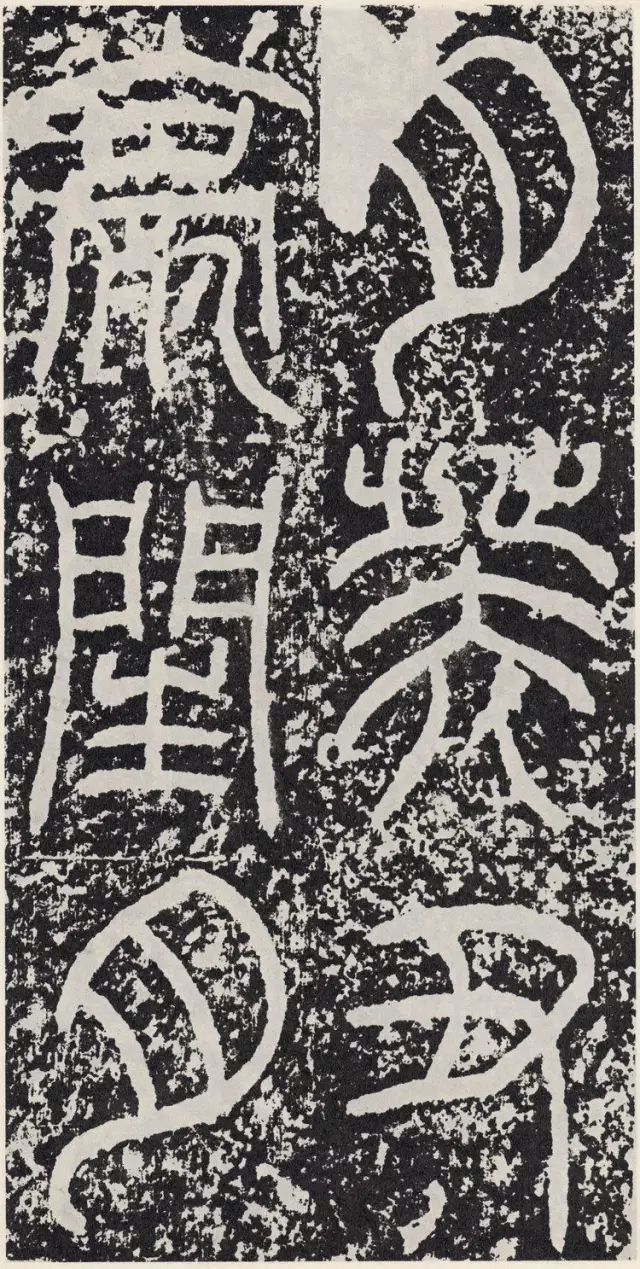 月癸丑
薨閏月